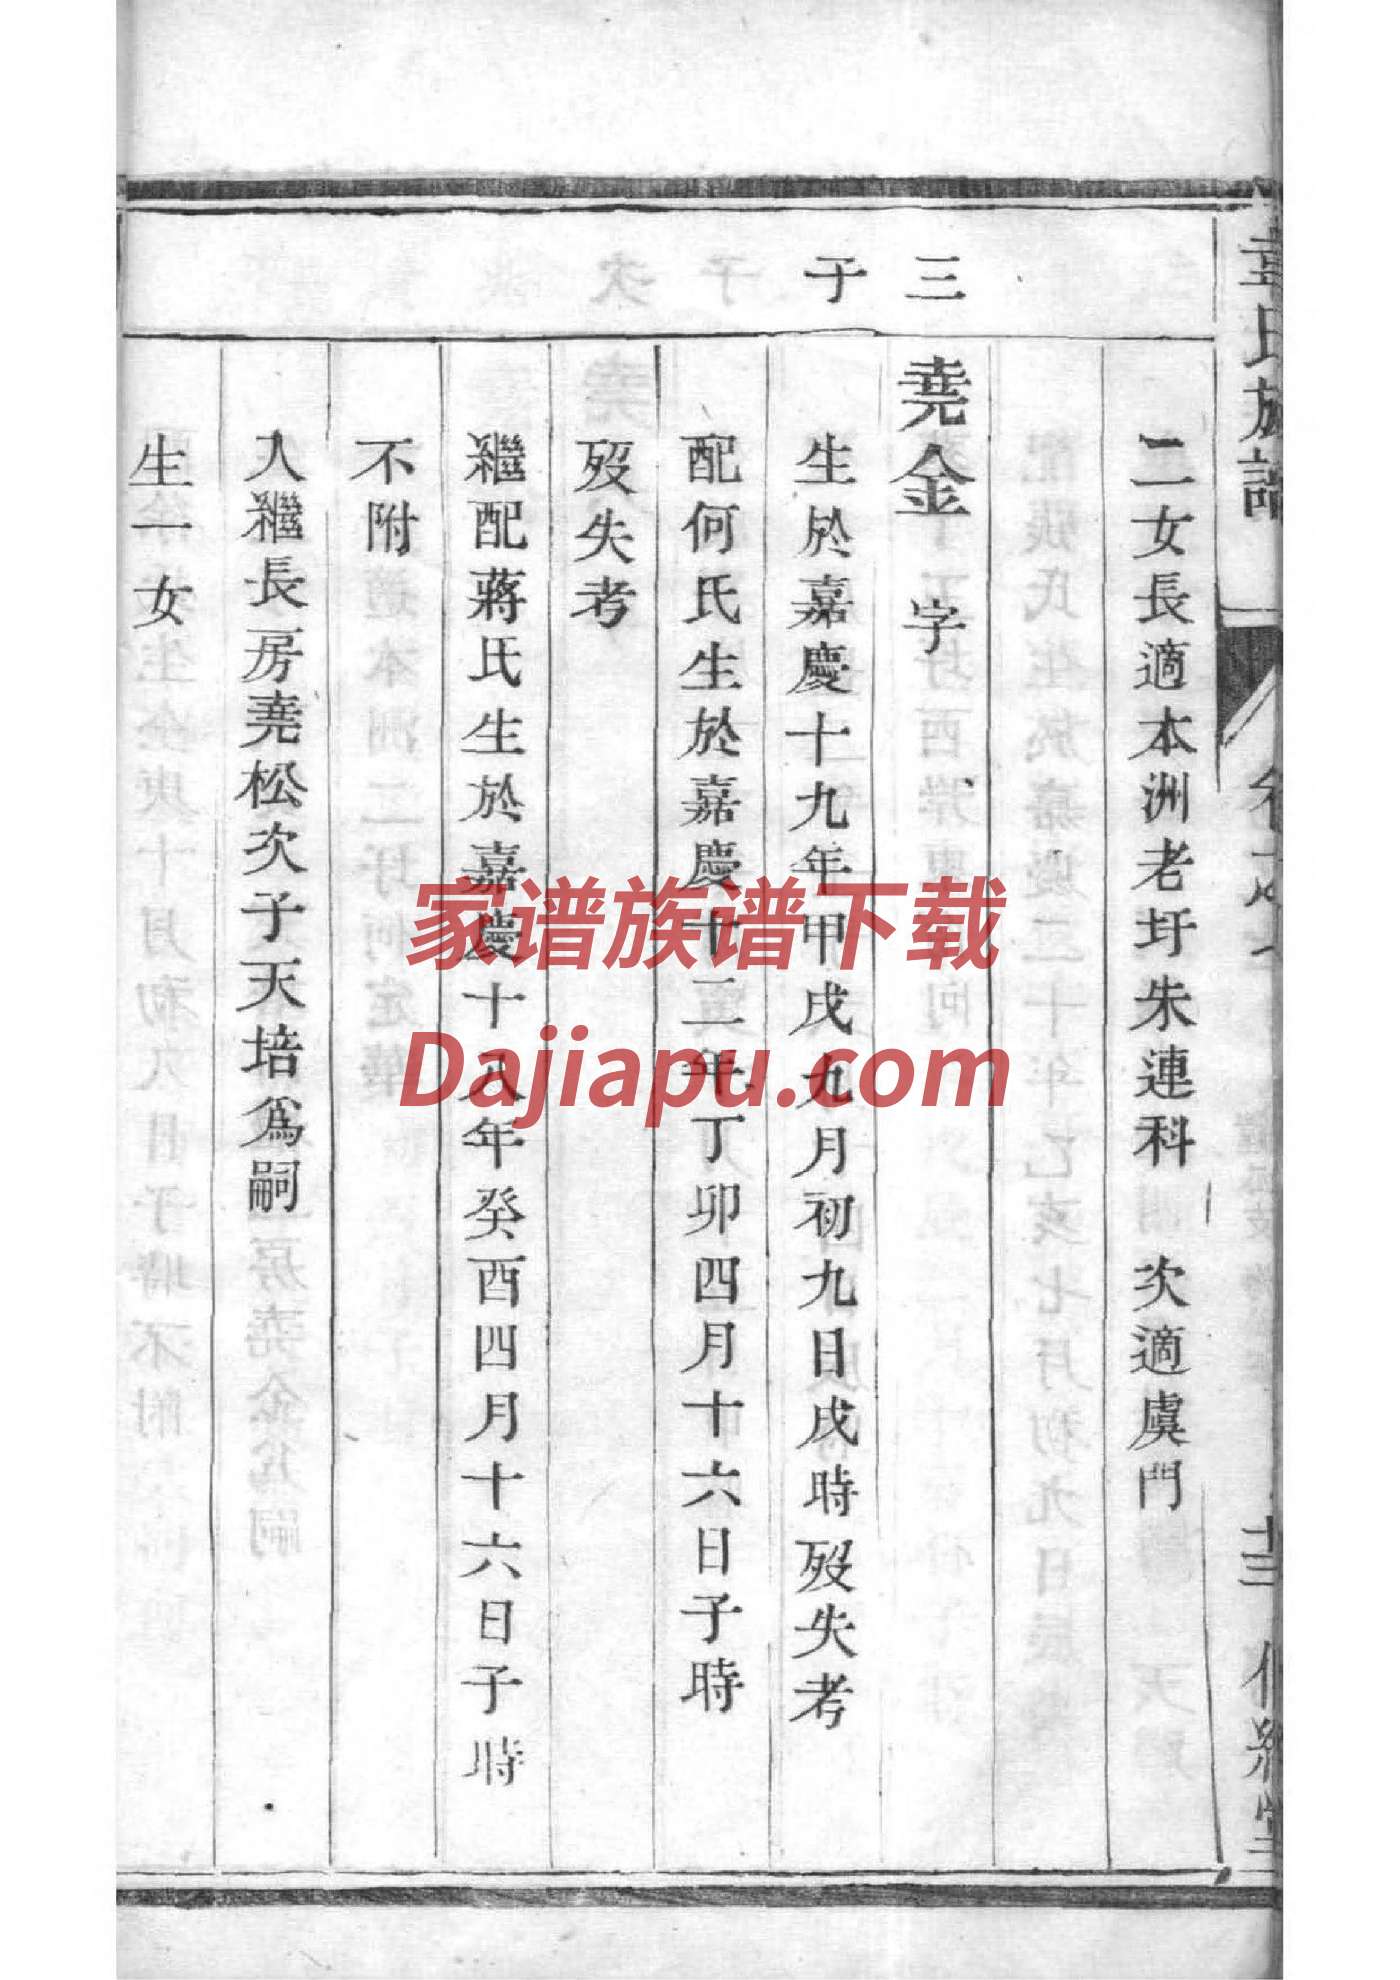 二女長適本洲老圩朱連科 次適虞門
三
堯金 字
于
生於嘉慶十九年甲戌九月初九日戌時歿失考
配何氏生於嘉慶十二年丁卯四月十六日子時
歿失考
繼配蔣氏生於嘉慶十八年癸酉四月十六日子時
不附
入繼長房堯松次子天培爲嗣
生一女
家谱族谱下载
Dajiapu.com